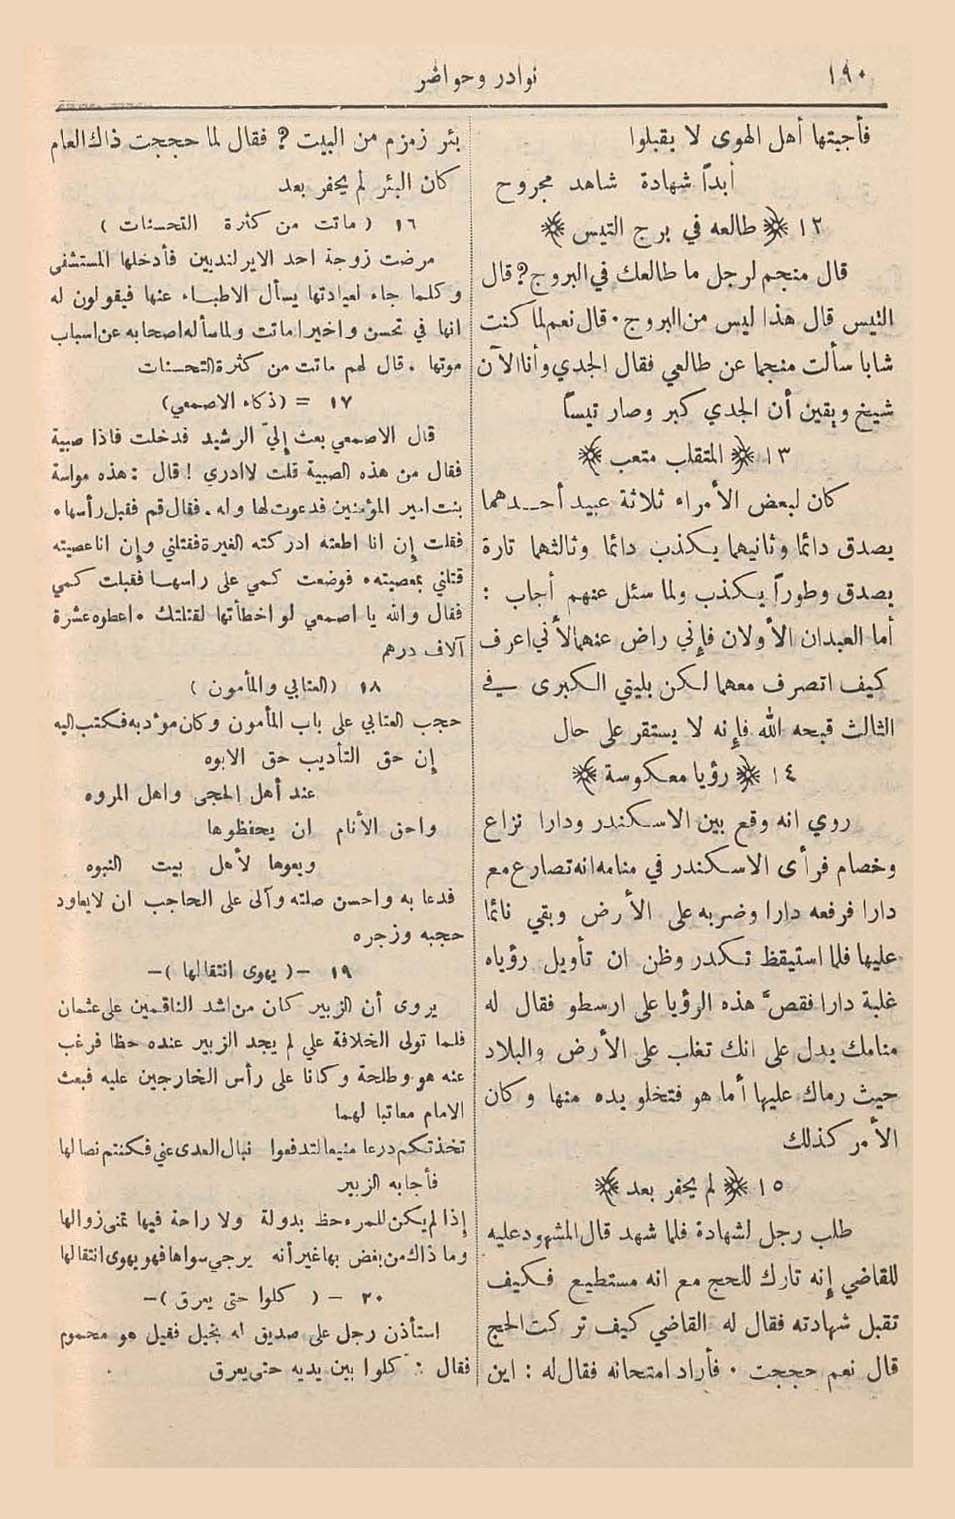 ١٩٠
نوادر وحواضر
فأجبتها أهل الهوى لا يقبلوا
أبداً شهادة شاهد مجروح
١٢ ﴿ طالعه في برج التيس ﴾
قال منجم لرجل ما طالعك في البروج ? قال
التيس قال هذا ليس من البروج · قال نعم لما كنت
شابا سألت منجما عن طالعي فقال الجدي وأنا الآن
شيخ ويقين أن الجدي كبر وصار تيساً
١٣ ﴿ المتقلب متعب ﴾
كان لبعض الأمراء ثلاثة عبيد أحدهما
يصدق دائما وثانيهما يكذب دائما وثالثهما تارة
يصدق وطوراً يكذب ولما سئل عنهم أجاب :
أما العبدان الأولان فإني راض عنهما لأني اعرف
كيف اتصرف معهما لكن بليتي الكبرى في
الثالث قبحه الله فإنه لا يستقر على حال
١٤ ﴿ رؤيا معكوسة ﴾
روي انه وقع بين الاسكندر ودارا نزاع
وخصام فرأى الاسكندر في منامه انه تصارع مع
دارا فرفعه دارا وضربه على الأرض وبقي نائما
عليها فلما استيقظ تكدر وظن ان تأويل رؤياه
غلبة دارا فقص هذه الرؤيا على ارسطو فقال له
منامك يدل على انك تغلب على الأرض والبلاد
حيث رماك عليها أما هو فتخلو يده منها وكان
الأمر كذلك
١٥ ﴿ لم يحفر بعد ﴾
طلب رجل لشهادة فلما شهد قال المشهود عليه
للقاضي إنه تارك للحج مع انه مستطيع فكيف
تقبل شهادته فقال له القاضي كيف تركت الحج
قال نعم حججت · فأراد امتحانه فقال له : اين
بئر زمزم من البيت ? فقال لما حججت ذاك العام
كان البئر لم يحفر بعد
١٦ ( ماتت من كثرة التحسنات )
مرضت زوجة احد الايرلنديين فأدخلها المستشفى
وكلما جاء لعيادتها يسأل الاطباء عنها فيقولون له
انها في تحسن واخيرا ماتت ولما سأله اصحابه عن اسباب
موتها . قال لهم ماتت من كثرة التحسنات
١٧ = (ذكاء الاصمعي)
قال الاصمعي بعث إليّ الرشيد فدخلت فاذا صبية
فقال من هذه الصبية قلت لا ادري ! قال : هذه مواسة
بنت امير المؤمنين فدعوت لها وله . فقال قم فقبل رأسها ·
فقلت إن انا اطعته ادركته الغيرة فقتلني وإن انا عصيته
قتلني بمعصيته · فوضعت كمي على راسها فقبلت كمي
فقال والله يا اصمعي لو اخطأتها لقتلتك · اعطوه عشرة
آلاف درهم
١٨ (العتابي والمأمون )
حجب العتابي على باب المأمون وكان مؤدبه فكتب اليه
إن حق التأديب حق الابوه
عند أهل الحجى واهل المروه
واحق الأنام ان يحفظوها
ويعوها لأهل بيت النبوه
فدعا به واحسن صلته وآلى على الحاجب ان لا يعاود
حجبه وزجره
١٩ –( يهوى انتقالها )–
يروى أن الزبير كان من اشد الناقمين على عثمان
فلما تولى الخلافة علي لم يجد الزبير عنده حظا فرغب
عنه هو وطلحة وكانا على رأس الخارجين عليه فبعث
الامام معاتبا لهما
تخذتكم درعا منيعا لتدفعوا نبال العدى عني فكنتم نصالها
فأجابه الزبير
إذا لم يكن للمرء حظ بدولة ولا راحة فيها تمنى زوالها
وما ذاك من بغض بها غير أنه يرجي سواها فهو يهوى انتقالها
٢٠ – ( كلوا حتى يعرق )–
استأذن رجل على صديق له بخيل فقيل هو محموم
فقال : كلوا بين يديه حتى يعرق